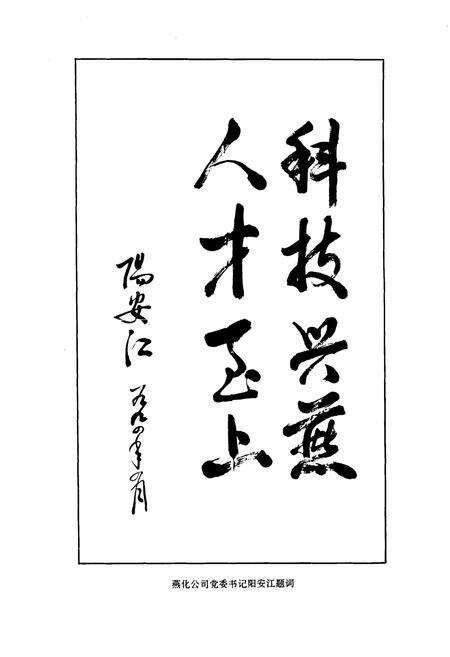 科技兴燕
人才至上
阳安江
年 月
燕化公司党委书记阳安江题词